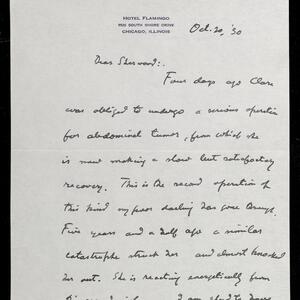 HOTEL FLAMINGO
5520 SOUTH SHORE DRIVE
CHICAGO, ILLINOIS
Oct. 20, '50
Dear Sherwood:.
Four days ago Clare
was obliged to undergo a serious operation
for abdominal tumor, from which she
is now making a slow but satisfactory
recovery. This is the second operation of
this kind my poor darling has gone through.
Five years and a half ago a similar
catastrophe struck her and almost knocked
her out. She is reacting energetically from
I am glad to have